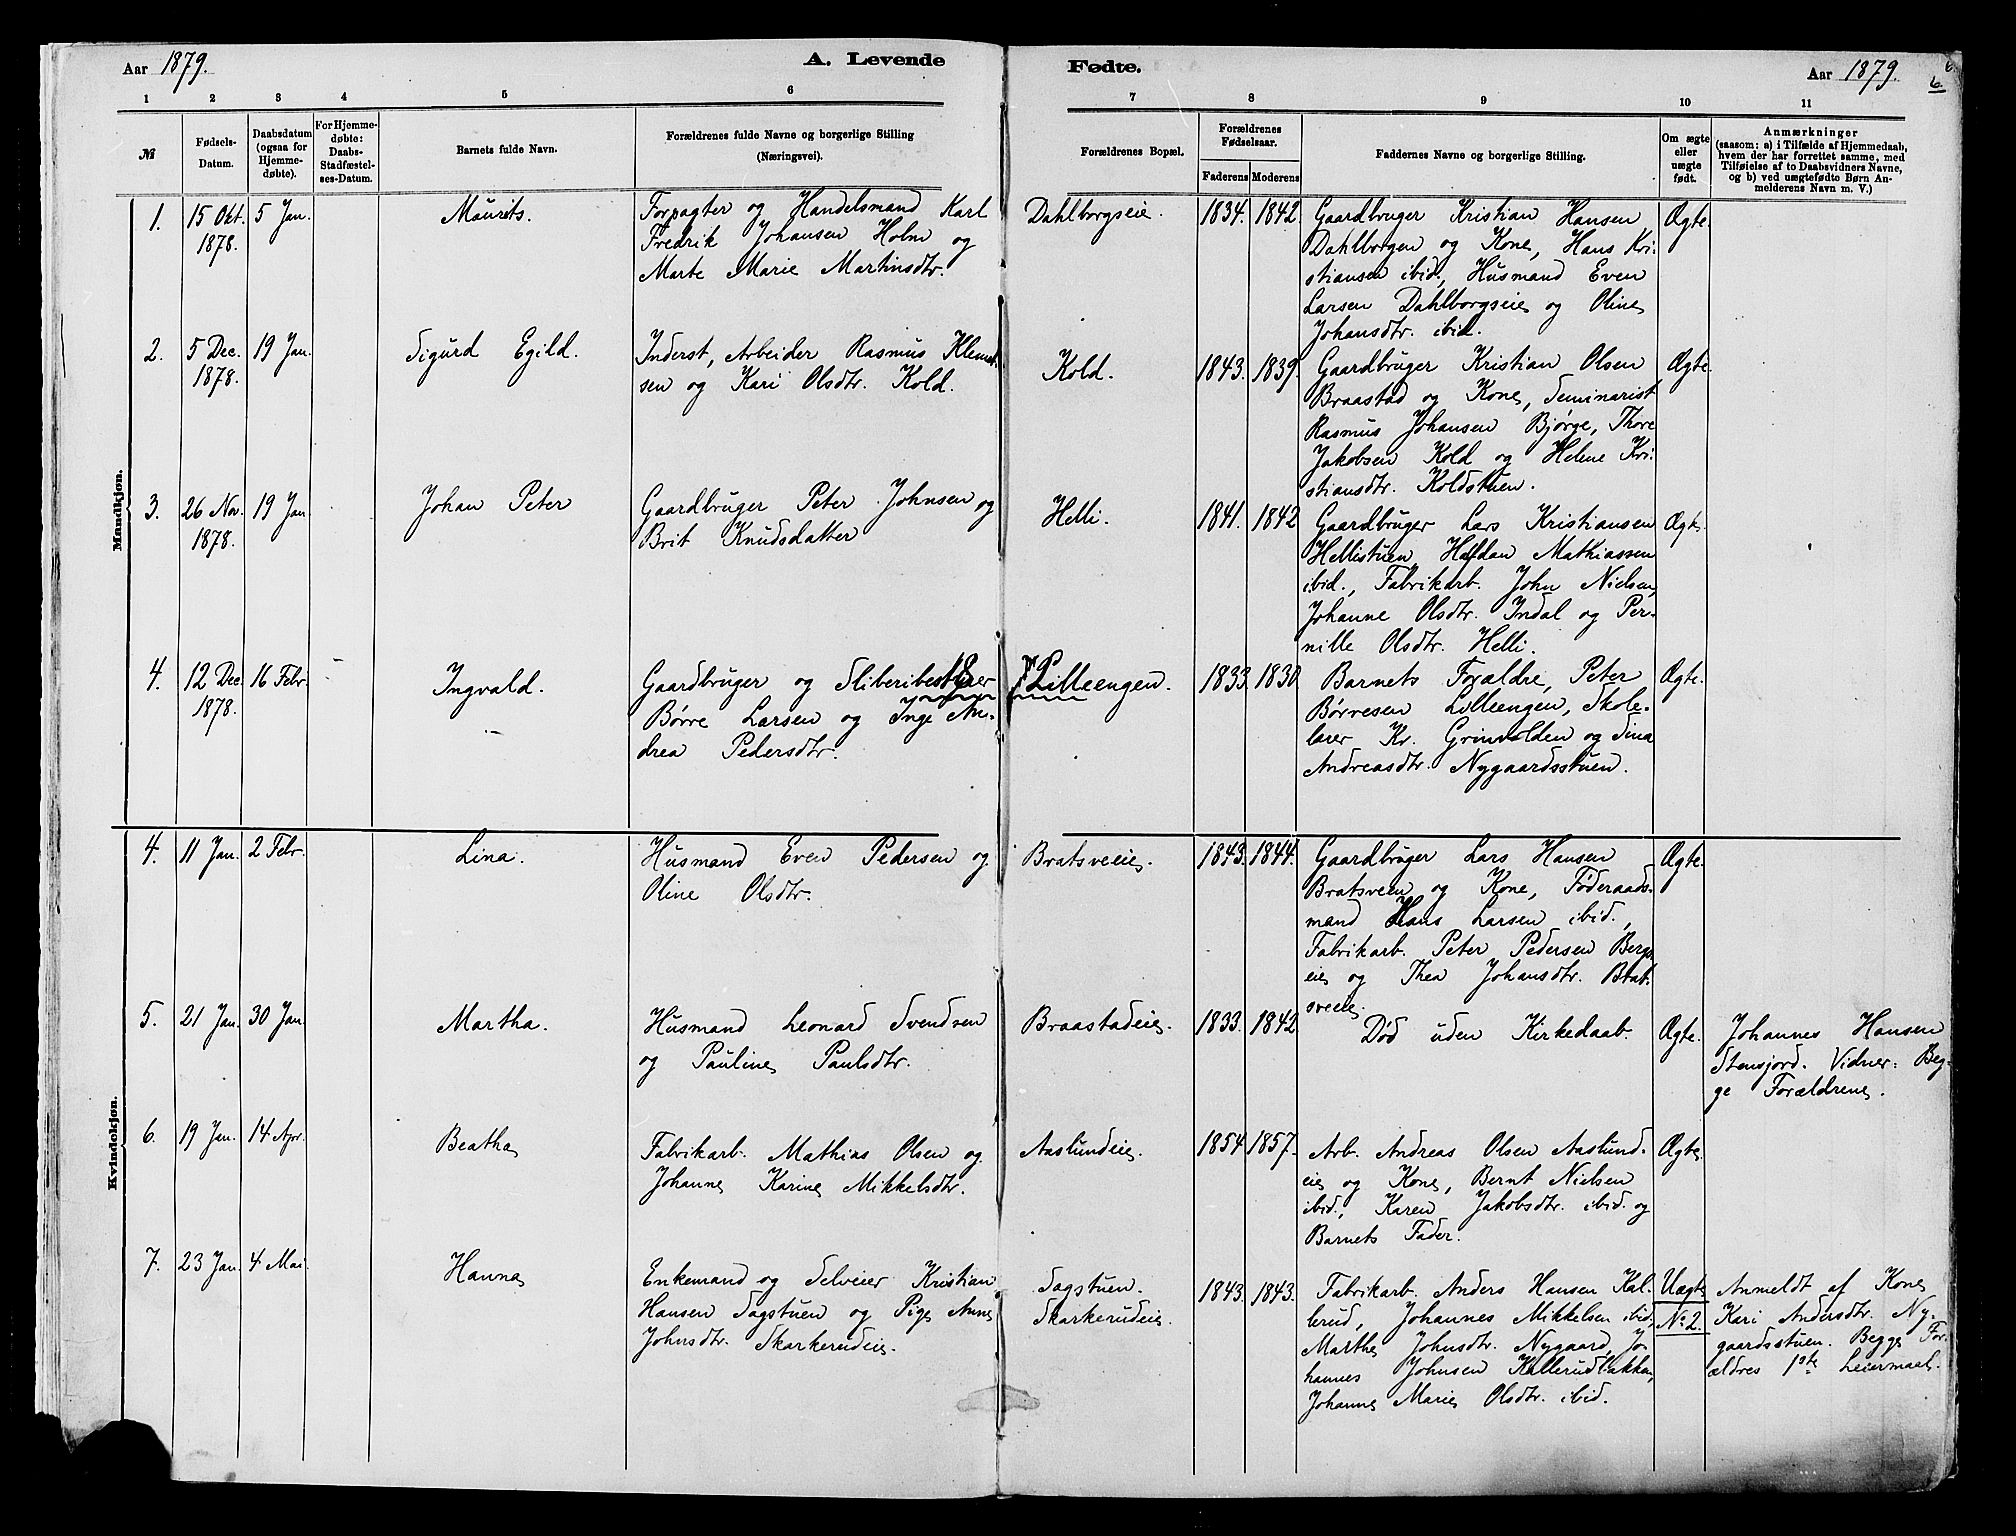 Aar 1879.
A. Levende Fødte.
Aar 1879.
6
6
1 2 3 4 5 6 7 8 9 10 11
№
Fødsels-
Datum.
Daabsdatum
(ogsaa for
Hjemme-
døbte).
For Hjemme-
døbte:
Daabs-
Stadfæstel-
ses-Datum.
Barnets fulde Navn.
Forældrenes fulde Navne og borgerlige Stilling
(Næringsvei).
Forældrenes Bopæl.
Forældrenes
Fødselsaar.
Faderens Moderens
Faddernes Navne og borgerlige Stilling.
Om ægte
eller
uægte
født.
Anmærkninger
(saasom: a) i Tilfælde af Hjemmedaab,
hvem der har forrettet samme, med
Tilføielse af to Daabsvidners Navne,
og b) ved uægtefødte Børn An-
melderens Navn m. V.)
Mandkjøn.
1.
15 Okt.
1878.
5 Jan.
Maurits.
Forpagter og Handelsmand Karl
Fredrik Johansen Holm og
Marte Marie Martinsdtr.
Dahlborgseie.
1834. 1842.
Gaardbruger Kristian Hansen
Dahlborgen og Kone, Hans Kri-
stiansen ibid., Husmand Even
Larsen Dahlborgseie og Oline
Johansdtr. ibid.
Ægte.
2.
5 Dec.
1878.
19 Jan.
Sigurd Egild.
Inderst, Arbeider Rasmus Klemet-
sen og Kari Olsdtr. Kold.
Kold.
1843. 1839.
Gaardbruger Kristian Olsen
Braastad og Kone, Seminarist
Rasmus Johansen Bjørge, Thore
Jakobsen Kold og Helene Kri-
stiansdtr. Koldstuen.
Ægte.
3.
26 Nov.
1878.
19 Jan
Johan Peter
Gaardbruger Peter Johnsen og
Brit Knudsdatter
Helli.
1841. 1842
Gaardbruger Lars Kristiansen
Hellistuen, Halfdan Mathiassen
ibid., Fabrikarb. John Nielsen,
Johanne Olsdtr. Indal og Per-
nille Olsdtr. Helli.
Ægte.
4.
12 Dec.
1878.
16 Febr.
Ingvald.
Gaardbruger og Sliberibestyrer
Børre Larsen og Inge An-
drea Pedersdtr.
Lilleengen.
1833. 1830
Barnets Forældre, Peter
Børresen Lilleengen, Skole-
lærer Kr. Grinvolden og Sina
Andreasdtr. Nygaardsstuen.
Ægte.
Kvindekjøn.
4.
11 Jan.
2 Febr.
Lina.
Husmand Even Pedersen og
Oline Olsdtr.
Bratsveeie.
1843. 1844.
Gaardbruger Lars Hansen
Bratsveen og Kone, Føderaads-
mand Hans Larsen ibid.,
Fabrikarb. Peter Pedersen Bergs-
eie og Thea Johansdtr. Brat-
sveeie.
Ægte.
5.
21 Jan.
30 Jan.
Martha.
Husmand Leonard Svendsen
og Pauline Paulsdtr.
Braastadeie.
1833. 1842.
Død uden Kirkedaab.
Ægte.
Johannes Hansen
Stensjord. Vidner: Beg-
ge Forældrene.
6.
19 Jan.
14 Apr.
Beatha
Fabrikarb. Mathias Olsen og
Johanne Karine Mikkelsdtr.
Aaslundeie.
1854 1857.
Arb. Andreas Olsen Aaslund-
eie og Kone, Bernt Nielsen
ibid., Karen Jakobsdtr. ibid. og
Barnets Fader.
Ægte.
7.
23 Jan.
4 Mai.
Hanna
Enkemand og Selveier Kristian
Hansen Sagstuen og Pige Anne
Johnsdtr. Skarkerudeie.
Sagstuen.
Skarkerudeie.
1843. 1843.
Fabrikarb. Anders Hansen Kal-
lerud, Johannes Mikkelsen ibid.,
Marthe Johnsdtr. Nygaard, Jo-
hannes Johnsen Kallerudbakken,
Johanne Marie Olsdtr. ibid.
Uægte
No 2.
Anmeldt af Kone
Kari Andersdtr. Ny-
gaardsstuen. Begge For-
ældres 1ste Leiermaal.